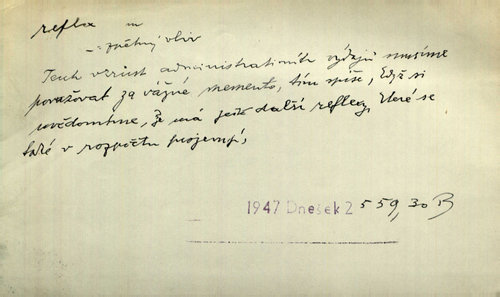 reflex m
-: zpětný vliv
Tento vzrůst administrativních výdajů musíme
považovat za vážné memento, tím spíše, když si
uvědomíme, že má ještě další reflexy, které se
také v rozpočtu projevují,
1947 Dnešek 2 559,30 B